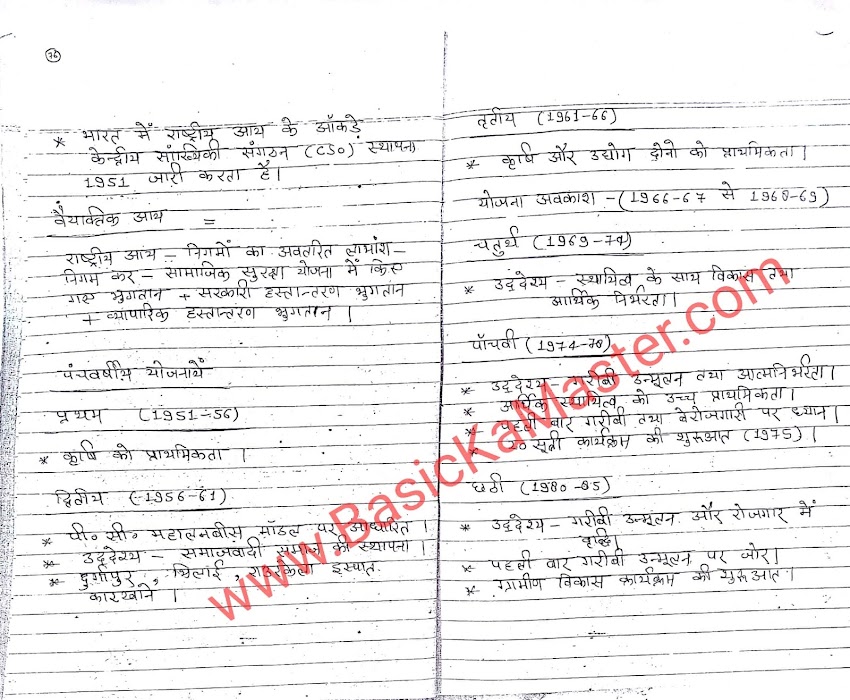 76
* भारत में राष्ट्रीय आय के आँकड़े
केन्द्रीय सांख्यिकी संगठन (CSO) स्थापना
1951 जारी करता है।
वैयाक्तिक आय =
राष्ट्रीय आय – निगमों का अवतरित लाभांश –
निगम कर – सामाजिक सुरक्षा योजना में किए
गए भुगतान + सरकारी हस्तान्तरण भुगतान
+ व्यापारिक हस्तान्तरण भुगतान ।
पंचवर्षीय योजनायें
प्रथम (1951-56)
* कृषि को प्राथमिकता ।
द्वितीय (-1956-61)
* पी० सी० महालनबीस मॉडल पर आधारित ।
* उद्देश्य – समाजवादी समाज की स्थापना ।
* दुर्गापुर, भिलाई, राउरकेला इस्पात
कारखाने ।
तृतीय (1961-66)
* कृषि और उद्योग दोनो को प्राथमिकता ।
योजना अवकाश – (1966-67 से 1968-69)
चतुर्थ (1969-74)
* उद्देश्य – स्थायित्व के साथ विकास तथा
आर्थिक निर्भरता ।
पाँचवी (1974-78)
* उद्देश्य – गरीबी उन्मूलन तथा आत्मनिर्भरता ।
* आर्थिक स्थायित्व को उच्च प्राथमिकता ।
* पहली बार गरीबी तथा बेरोजगारी पर ध्यान ।
* 20 सूत्री कार्यक्रम की शुरुआत (1975) ।
छठी (1980-85)
* उद्देश्य – गरीबी उन्मूलन और रोजगार में
वृद्धि ।
* पहली बार गरीबी उन्मूलन पर जोर ।
* ग्रामीण विकास कार्यक्रम की शुरूआत ।
www.BasicKaMaster.com